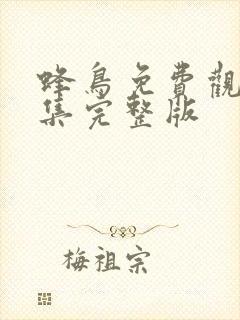 蜂鳥免費觀
集完整版
梅祖宗